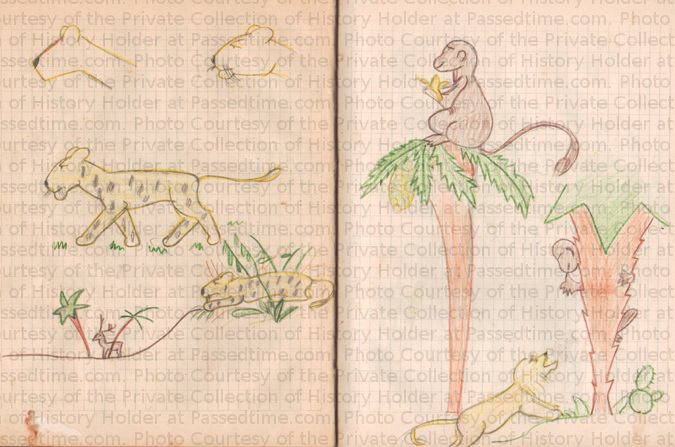 Photo Courtesy of the Private Collection of History Holder at Passedtime.com.